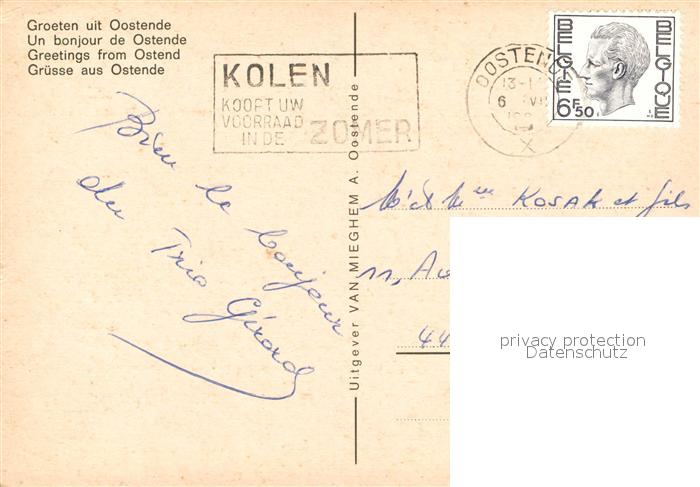 Groeten uit Oostende
Un bonjour de Ostende
Greetings from Ostend
Grüsse aus Ostende
KOLEN
KOOPT UW
VOORRAAD
IN DE ZOMER
OOSTENDE
13-1
6 VII
X
BELGIË BELGIQUE
6F50
Bien le bonjour
du Trio Girard
Uitgever VAN MIEGHEM A. Oostende
Mr et Mme KOSAK et fils
11, Av
44
privacy protection
Datenschutz